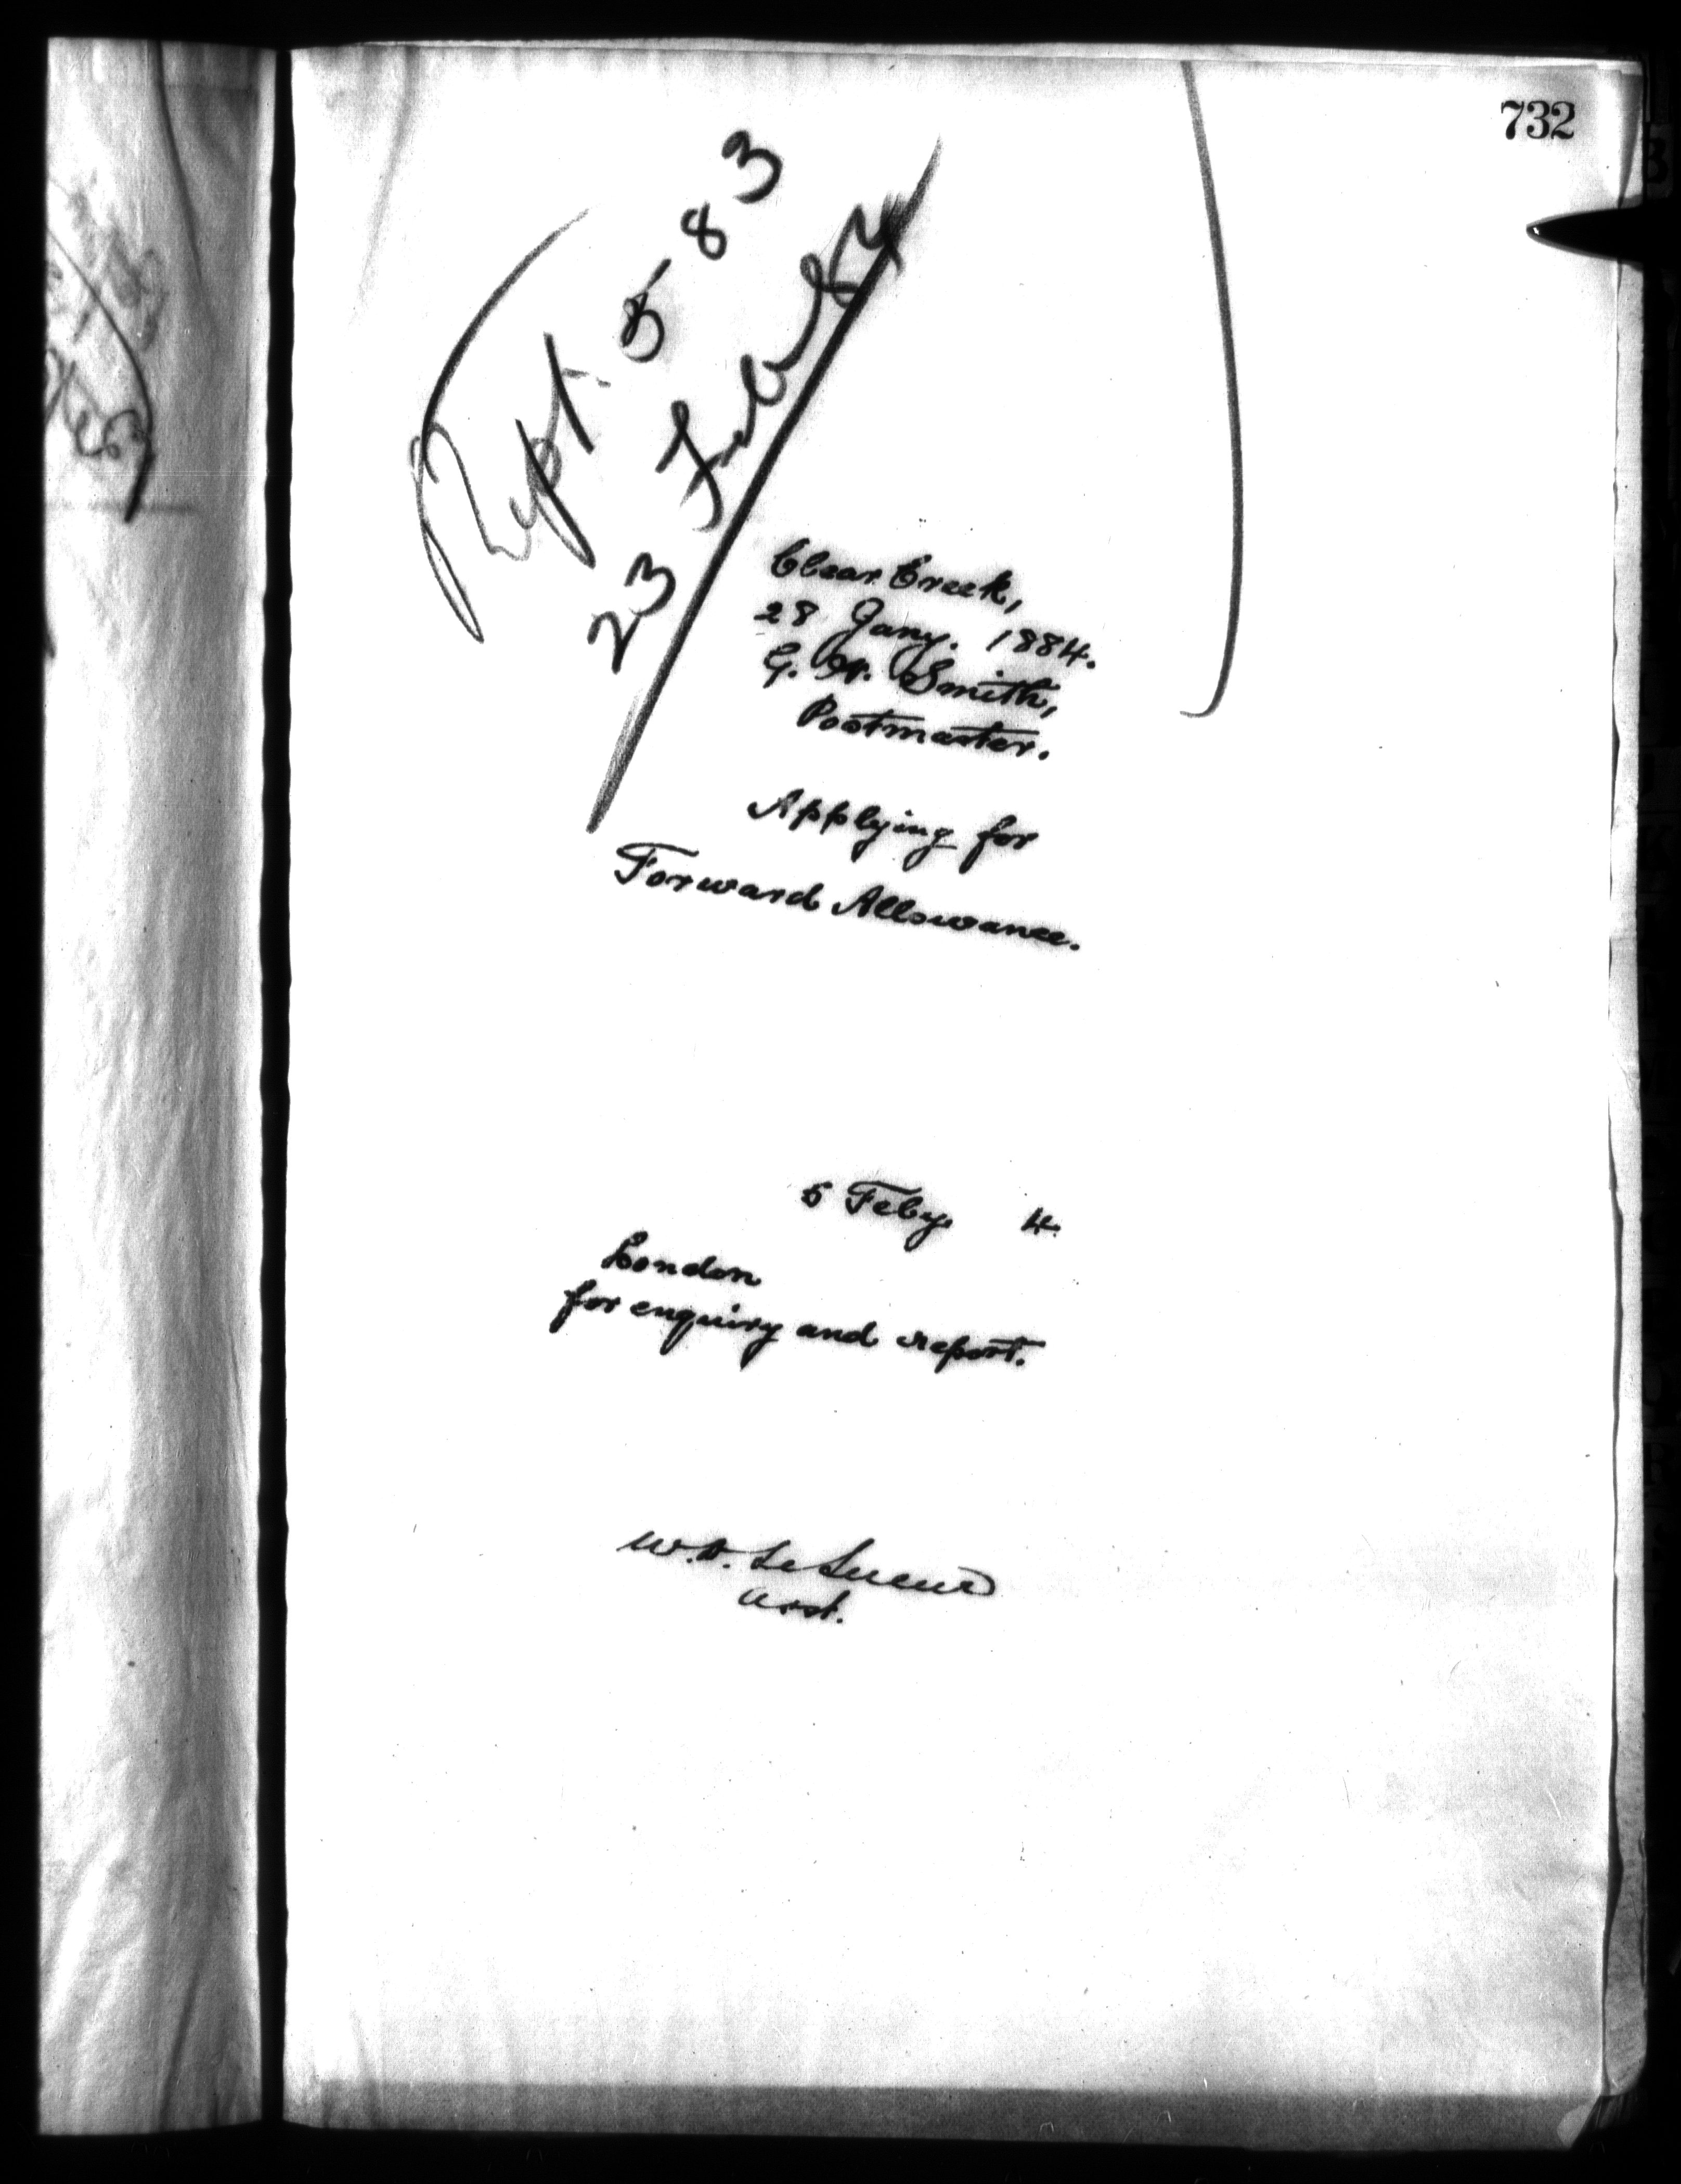 732
Rept. 5 83
23 Feb 84
Clear Creek,
28 Jany. 1884.
G. W. Smith,
Postmaster.
Applying for
Forward Allowance.
5 Feby. 4.
London
for enquiry and report.
W. D. LeSueur
Asst.